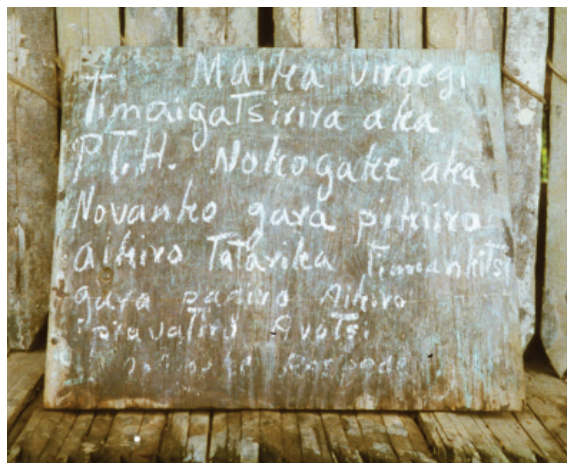 Maika viroegi
timaigatsirira aka
P.T.H. Nokogake aka
Novanko gara pikiiro
aikiro Tatarika Timankitsi
gara paniro Aikiro
pravatiro Avotsi